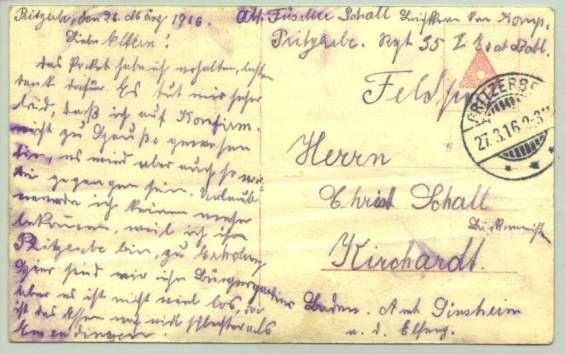 Pritzerbe, den 26. März 1916.
Liebe Eltern!
das Packet habe ich erhalten, besten
dank dafür. Es tut mir sehr
leid, daß ich auf Konfirm.
nicht zu Hause gewesen
bin, es wird aber auch so
gegangen sein. Urlaub
werde ich keinen mehr
bekommen, weil ich in
Pritzerbe bin, zu
Hier sind wir in Bürgerquartier
aber es ist nicht viel los,
ist das Essen noch viel schlechter als
Emmendingen.
Abs. Füsilier Schall
Pritzerbe. Rgt 35 I Ers. Batl.
Feldpost
PRITZERBE
27.3.16.
Herrn
Christ Schall
Kirchardt.
Baden. Amt Sinsheim
a. d. Elsenz.